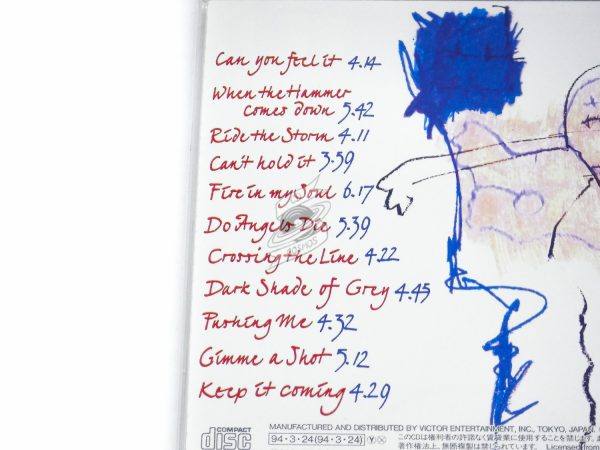 Can you feel it 4.14
When the Hammer
comes down 5.42
Ride the Storm 4.11
Can't hold it 3.59
Fire in my Soul 6.17
COSMOS
Do Angels Die 5.39
Crossing the Line 4.22
Dark Shade of Grey 4.45
Pushing Me 4.32
Gimme a Shot 5.12
Keep it coming 4.29
COMPACT
disc
MANUFACTURED AND DISTRIBUTED BY VICTOR ENTERTAINMENT, INC., TOKYO, JAPAN.
94・3・24(94・3・24) Ⓨ Ⓧ
このCDは権利者の許諾なく賃貸業に使用することを禁じます。ま
著作権法上、無断複製は禁じられています。 Licensed from